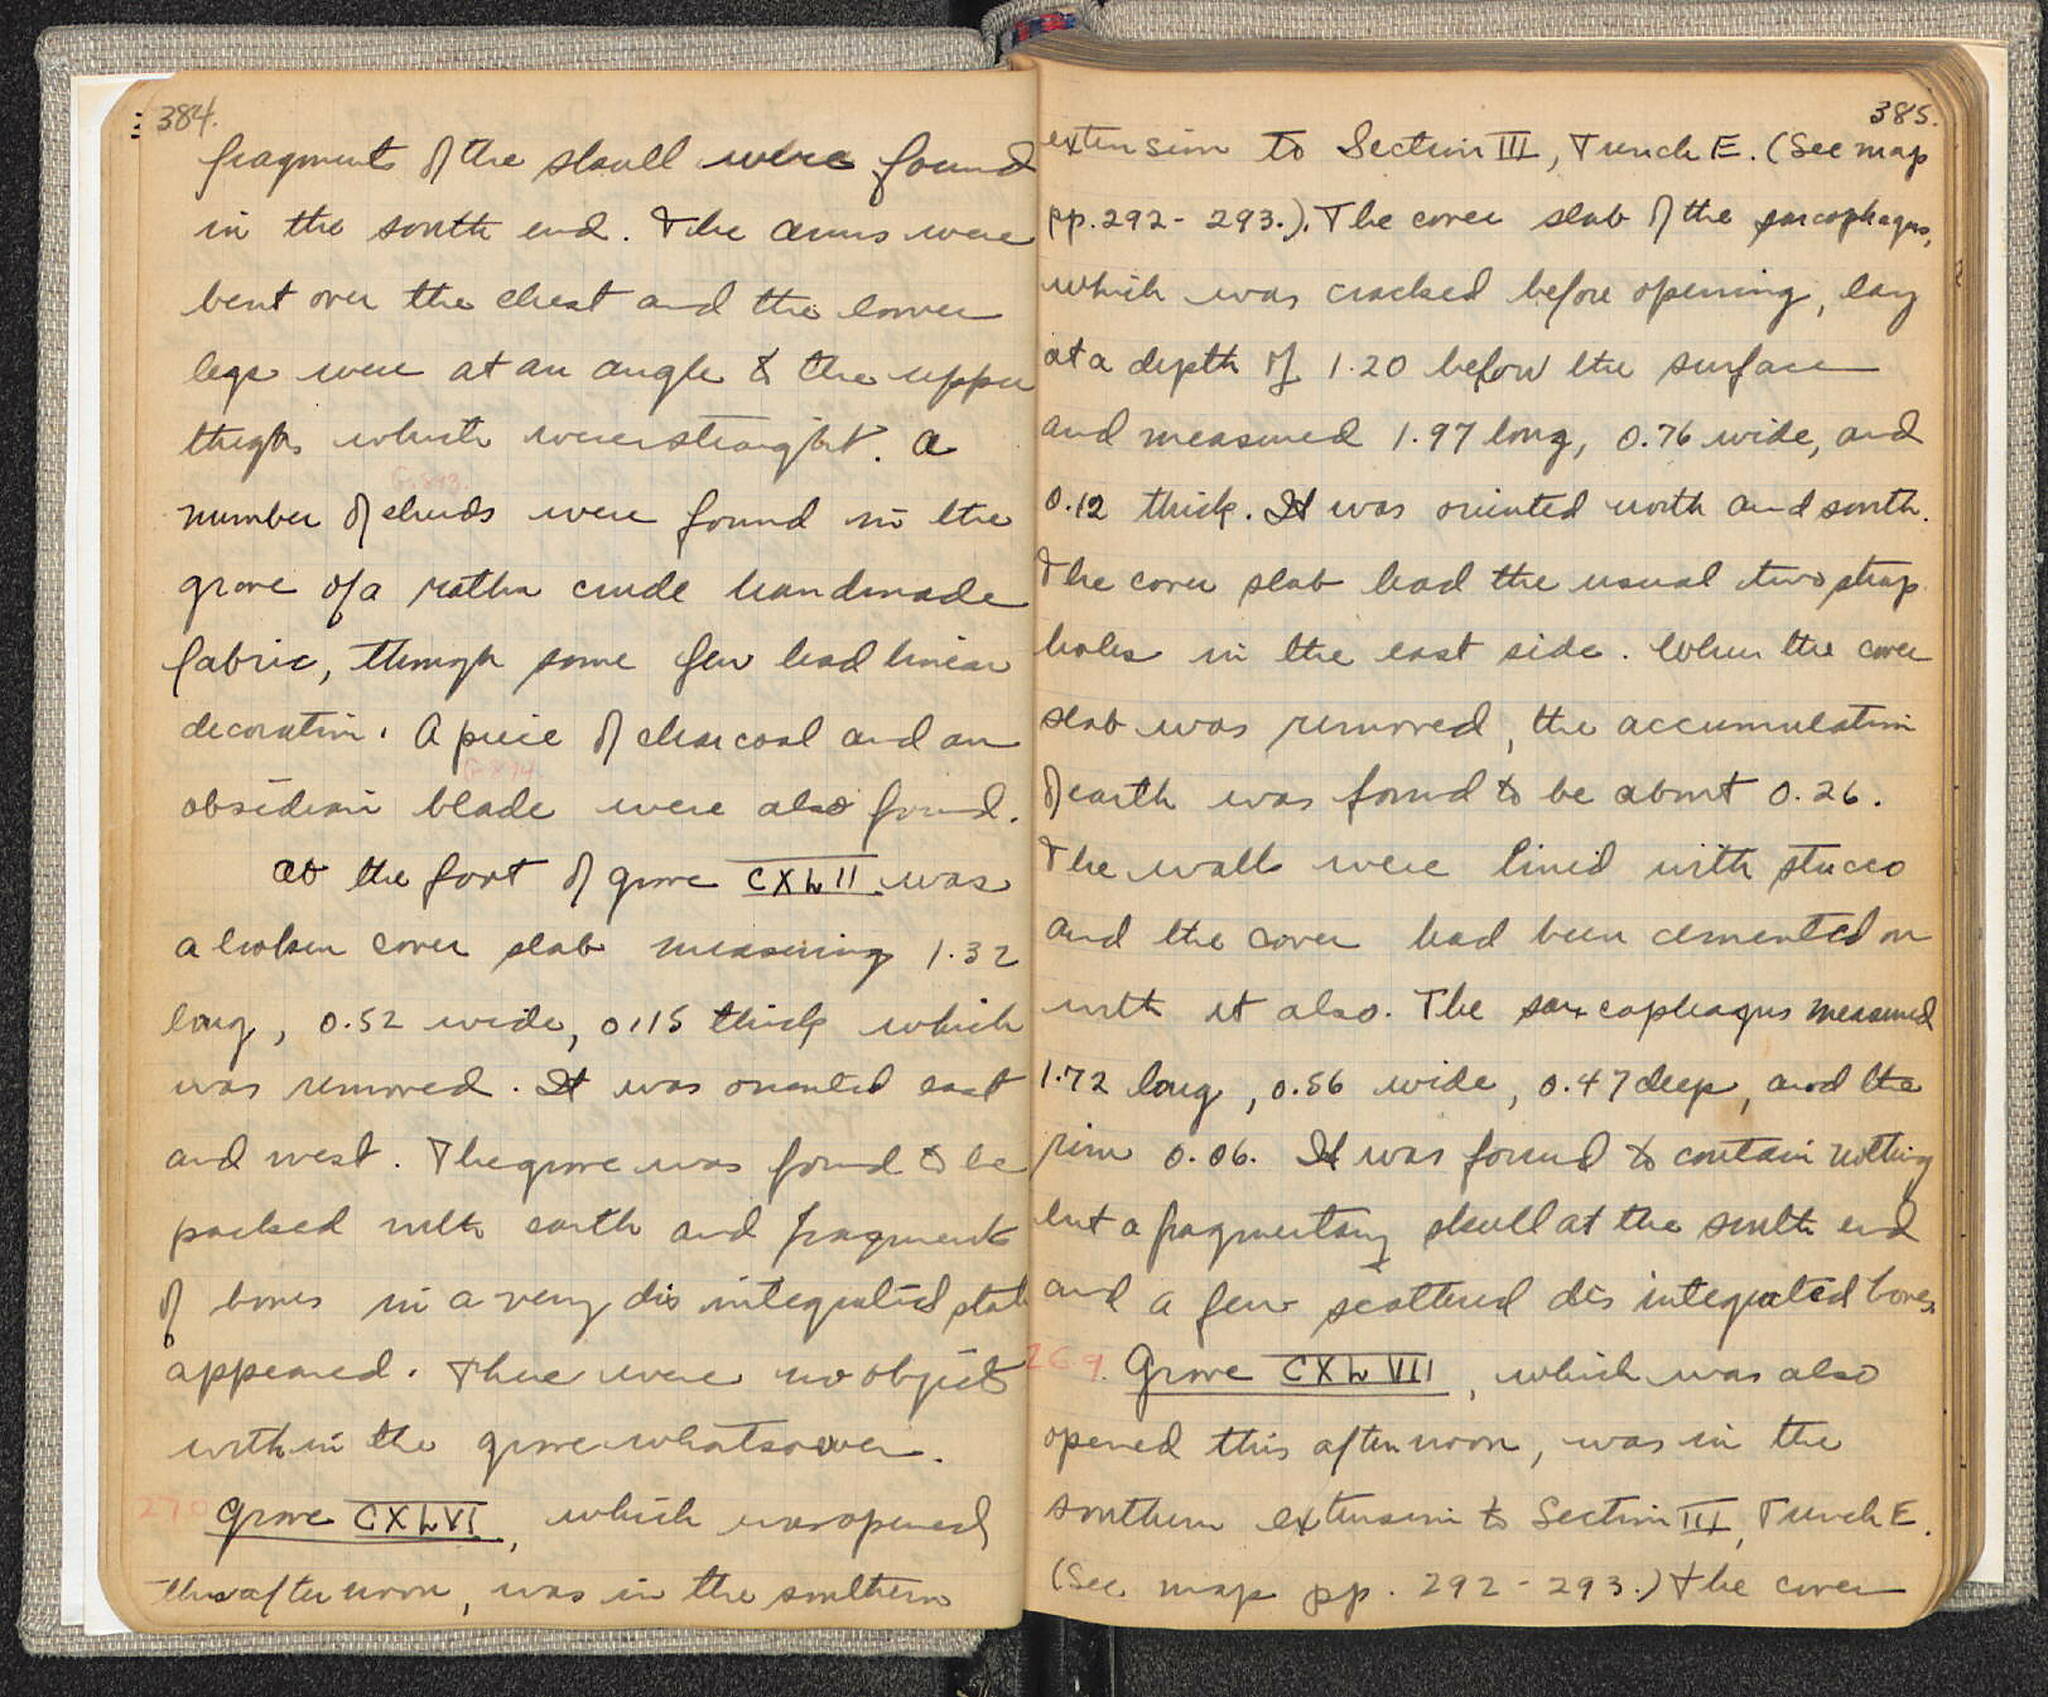 384.
fragments of the skull were found
in the south end. The arms were
bent over the chest and the lower
legs were at an angle to the upper
thighs which were straight. A
G.893.
number of sherds were found in the
grave of a rather crude handmade
fabric, though some few had linear
decoration. A piece of charcoal and an
G.894
obsidian blade were also found.
At the foot of grave CXLII was
a broken cover slab measuring 1.32
long, 0.52 wide, 0.115 thick which
was removed. It was oriented east
and west. The grave was found to be
packed with earth and fragments
of bones in a very dis integrated state
appeared. There were no objects
within the grave whatsoever.
270 Grave CXLVI, which was opened
this after noon, was in the southern
385.
extension to Section III, Trench E. (See map
pp. 292-293.). The cover slab of the sarcophagus,
which was cracked before opening, lay
at a depth of 1.20 below the surface
and measured 1.97 long, 0.76 wide, and
0.12 thick. It was oriented north and south.
The cover slab had the usual two strap
holes in the east side. When the cover
slab was removed, the accumulation
of earth was found to be about 0.26.
The walls were lined with stucco
and the cover had been cemented on
with it also. The sarcophagus measured
1.72 long, 0.56 wide, 0.47 deep, and the
rim 0.06. It was found to contain nothing
but a fragmentary skull at the south end
and a few scattered dis integrated bones.
269. Grave CXLVII, which was also
opened this after noon, was in the
southern extension to Section III, Trench E.
(See map pp. 292-293.) The cover